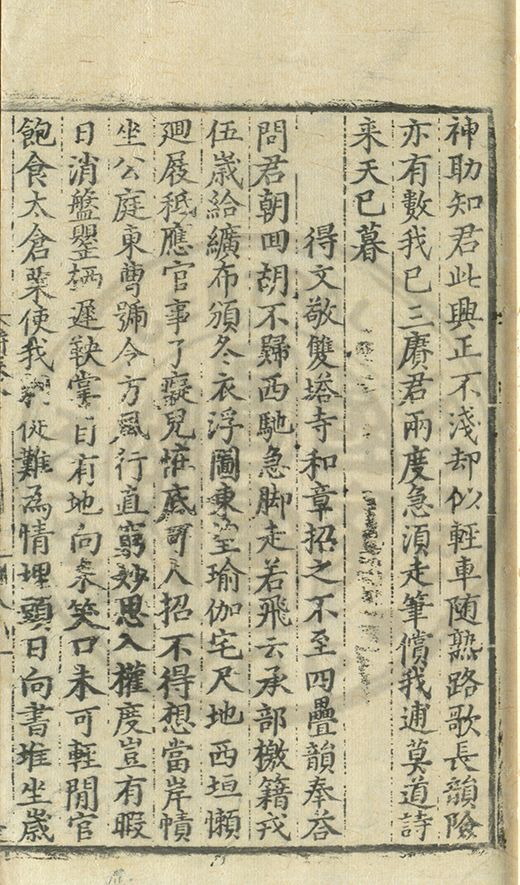 神助知君此興正不淺却似輕車随熟路歌長韻險
亦有數我已三賡君兩度急湏走筆償我逋莫道詩
来天已暮
得文敬雙塔寺和章招之不至四疊韻奉荅
問君朝回胡不歸西馳急脚走若飛云承部檄籍戎
伍歲給纊布頒冬衣浮圖東望瑜伽宅尺地西垣懶
廻屐秪應官事了癡兒恠底可人招不得想當岸幘
坐公庭東曹號令方風行直窮妙思入權度豈有暇
日消盤罌栖遲鞅掌日有地向来笑口未可輕閒官
飽食太倉粟使我從難為情埋頭日向書堆坐歲